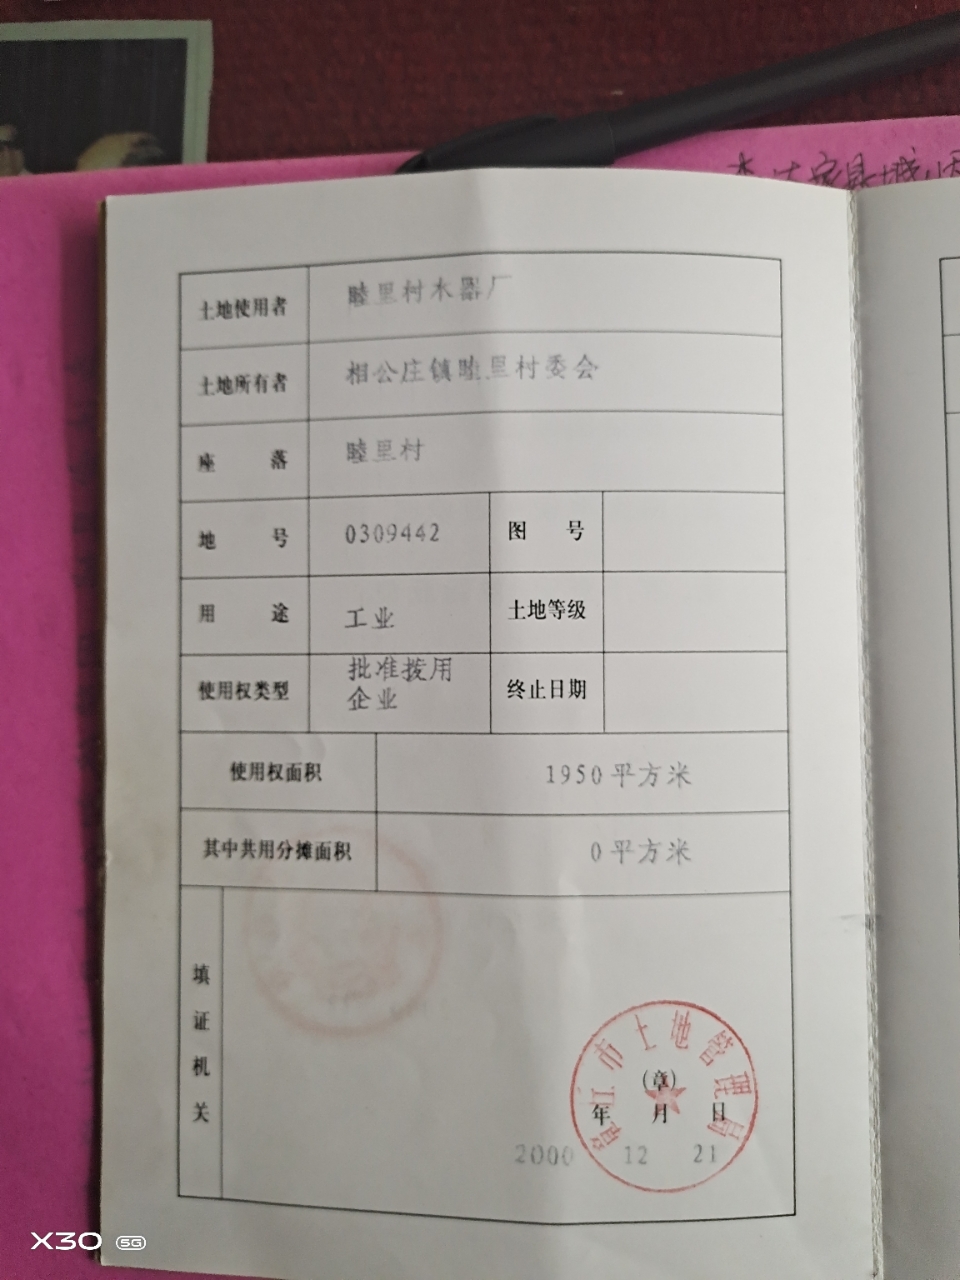 土地使用者 睦里村木器厂
土地所有者 相公庄镇睦里村委会
座落 睦里村
地号 0309442 图号
用途 工业 土地等级
使用权类型 批准拨用
企业 终止日期
使用权面积 1950平方米
其中共用分摊面积 0平方米
填证机关
市土地管理局
(章)
年 月 日
2000 12 21
X30 5G